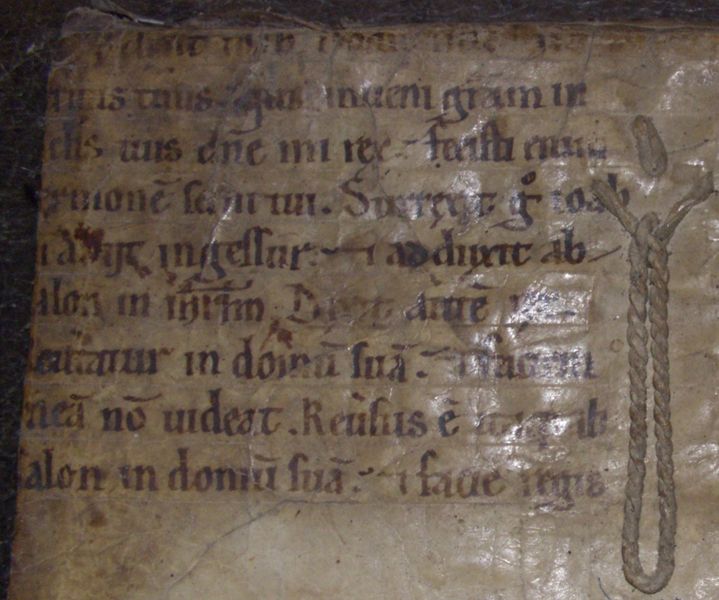 tuus. quia inueni gr̄am in
tuis dn̄e mi rex. fecisti enim
sermonē serui tui. Surrexit gͦ ioab
⁊ abijt in gessur. ⁊ adduxit ab
salon in ihr̄lm. Dixit autē
in domū suā. ⁊ faciem
meā nō uideat. Reu̾sus ē itaq; ab
salon in domū suā. ⁊ facie regis